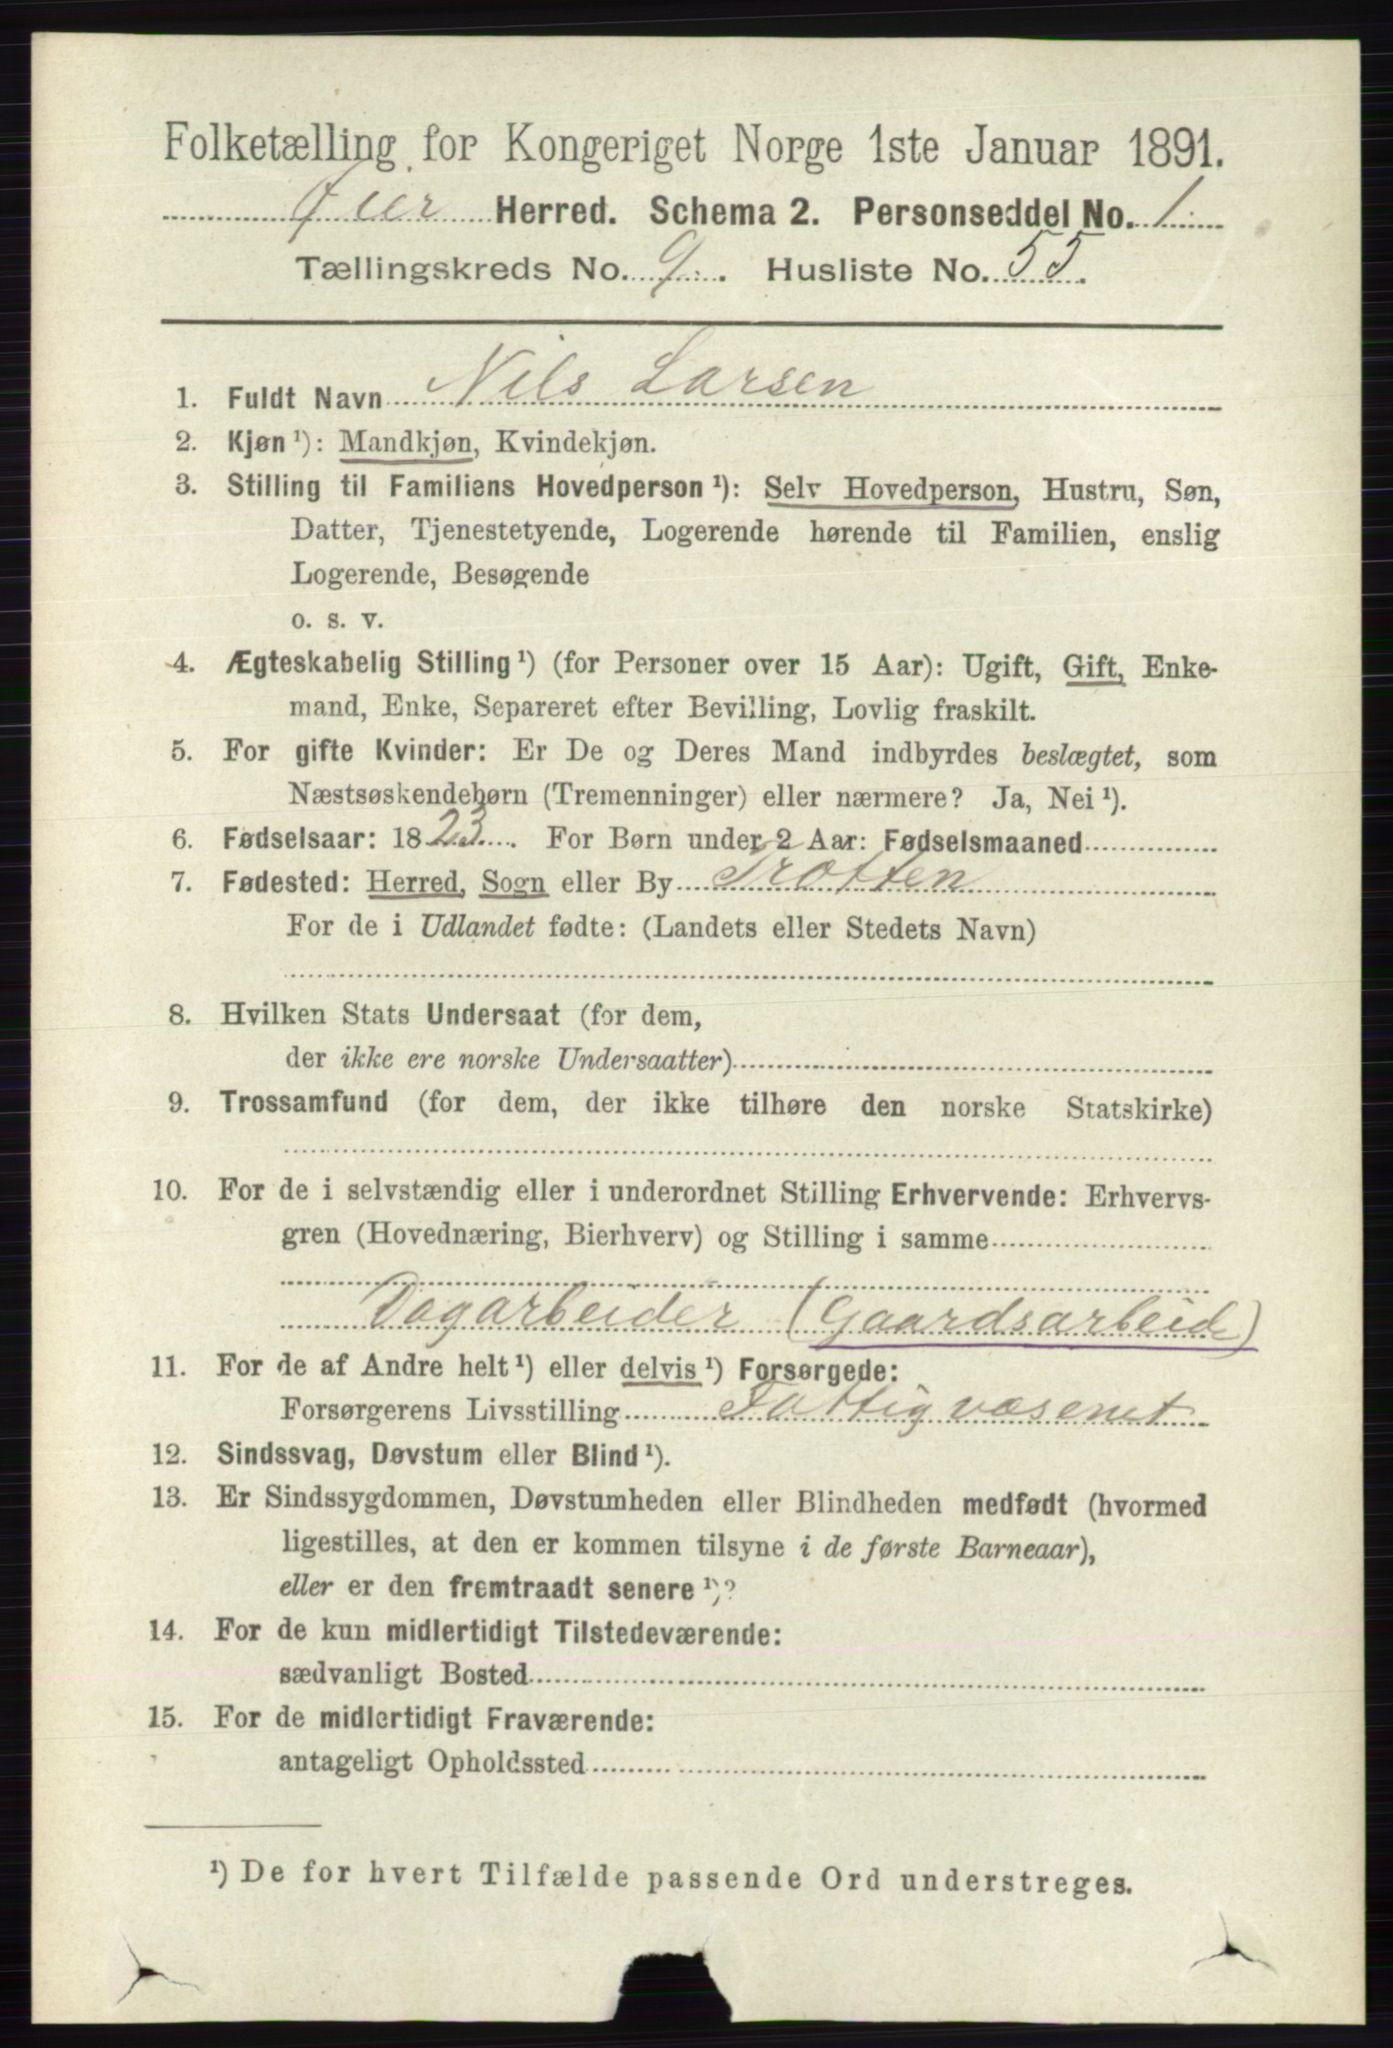 Folketælling for Kongeriget Norge 1ste Januar 1891.
Øier Herred. Schema 2. Personseddel No. 1.
Tællingskreds No. 9. Husliste No. 55.
1. Fuldt Navn Nils Larsen
2. Kjøn ¹): Mandkjøn, Kvindekjøn.
3. Stilling til Familiens Hovedperson ¹): Selv Hovedperson, Hustru, Søn,
Datter, Tjenestetyende, Logerende hørende til Familien, enslig
Logerende, Besøgende
o. s. v.
4. Ægteskabelig Stilling ¹) (for Personer over 15 Aar): Ugift, Gift, Enke-
mand, Enke, Separeret efter Bevilling, Lovlig fraskilt.
5. For gifte Kvinder: Er De og Deres Mand indbyrdes beslægtet, som
Næstsøskendebørn (Tremenninger) eller nærmere? Ja, Nei ¹).
6. Fødselsaar: 1823. For Børn under 2 Aar: Fødselsmaaned
7. Fødested: Herred, Sogn eller By Trotten
For de i Udlandet fødte: (Landets eller Stedets Navn)
8. Hvilken Stats Undersaat (for dem,
der ikke ere norske Undersaatter)
9. Trossamfund (for dem, der ikke tilhøre den norske Statskirke)
10. For de i selvstændig eller i underordnet Stilling Erhvervende: Erhvervs-
gren (Hovednæring, Bierhverv) og Stilling i samme
Dagarbeider (Gaardsarbeide)
11. For de af Andre helt ¹) eller delvis ¹) Forsørgede:
Forsørgerens Livsstilling Fattigvæsenet
12. Sindssvag, Døvstum eller Blind ¹).
13. Er Sindssygdommen, Døvstumheden eller Blindheden medfødt (hvormed
ligestilles, at den er kommen tilsyne i de første Barneaar),
eller er den fremtraadt senere ¹)?
14. For de kun midlertidigt Tilstedeværende:
sædvanligt Bosted
15. For de midlertidigt Fraværende:
antageligt Opholdssted
¹) De for hvert Tilfælde passende Ord understreges.